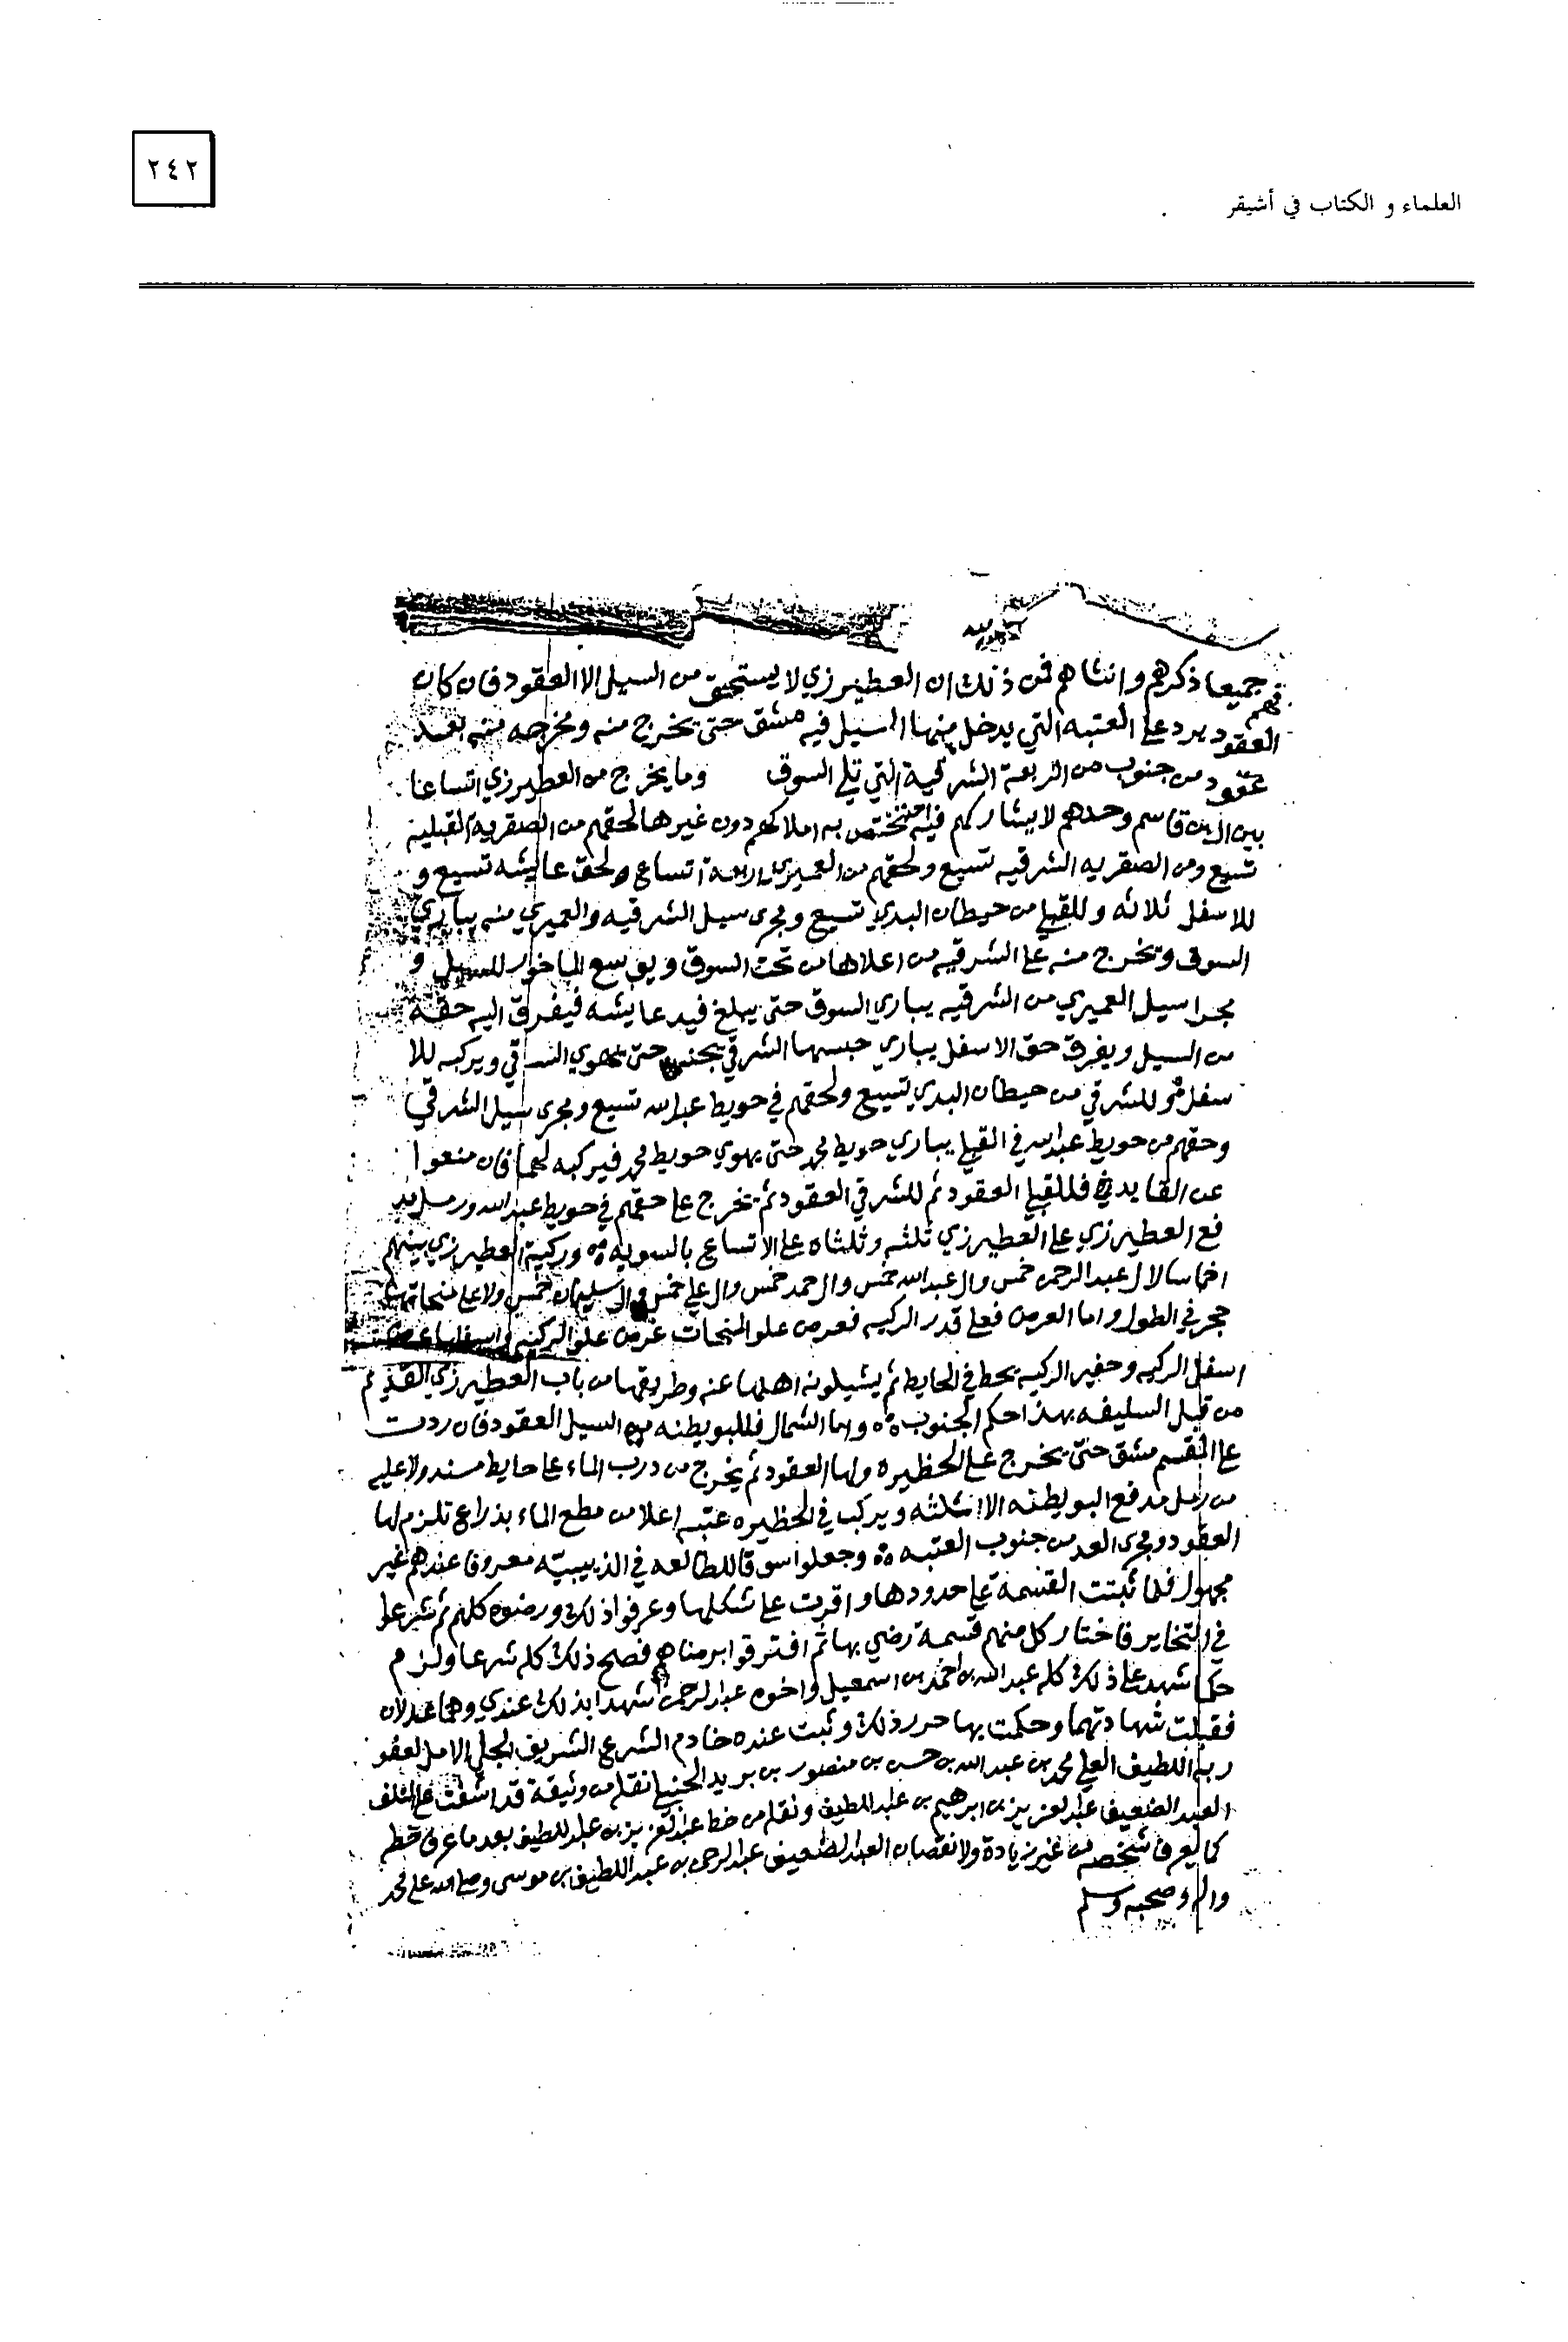 العلماء و الكتاب في أشيقر
٢٤٢
جميعا ذكرهم وانثاهم فمن ذلك ان العطيرزي لا يستحق من السيل الا العقود فان كان
العقود يرد على العتبه التي يدخل منها السيل فيه مشق حتى يخرج منه ومخرجه منه
عقود من جنوب من الربعة الشرقية التي تلي السوق وما يخرج من العطيرزي اتساعا
بين ال بن قاسم وحدهم لا يشاركهم فيه احد تختص به املاكهم دون غيرها لحقهم من الصقريه القبلية
تسيع ومن الصقريه الشرقيه تسيع ولحقهم من العميري اربعة اتساع ولحق عايشه تسيع و
للاسفل ثلاثه وللقبلي من حيطان البدي تسيع ومجرى سيل الشرقيه والعميري منه يباري
السوق وتخرج منه على الشرقيه من اعلاها من تحت السوق ويوسع الماخور للسيل و
مجرا سيل العميري من الشرقيه يباري السوق حتى يبلغ فيد عايشه فيفرق اليه حقه
من السيل ويفرق حق الاسفل يباري حبسها الشرقي حتى يهوي الساقي ويركبه للا
سفل ثم للشرقي من حيطان البدي تسيع ولحقهم في حويط عبدالله تسيع ومجرى سيل الشرقي
وحقهم من حويط عبدالله في القبلي يباري حويط محمد حتى يهوي حويط محمد فيركبه لهما فان منعوا
عن القايد فللقبلي العقود ثم للشرقي العقود ثم تخرج على حقهم في حويط عبدالله ورمل مد
فع العطيرزي على العطيرزي ثلثه وثلثاه على الاتساع بالسويه وركية العطيرزي بينهم
اخماسا لال عبدالرحمن خمس وال عبدالله خمس وال حمد خمس وال علي خمس وال سليمان خمس ولا على منحاتها
حجر في الطول واما العرض فعلى قدر الركيه فعرض علو المنحات عرض علو الركيه
اسفل الركيه وحفير الركيه يحط في الحايط ثم يشيلونه اهلها عنه وطريقها من باب العطيرزي القديم
من قبل السليفه بهذا حكم الجنوب واما الشمال فللبويطنه من السيل العقود فان ردت
على المقسم مشق حتى يخرج على الحظيره ولها العقود ثم يخرج من درب الماء على حايط مسند ولا عليه
من رمل مدفع البويطنه الا ثلثه ويركب في الحظيره عتبه اعلا من مطع الماء بذراع تلزم لها
العقود ومجرى العد من جنوب العتبه وجعلوا سوقا للطالعه في الذبيبيه معروفا عندهم غير
مجهول فلما ثبتت القسمة على حدودها واقرت على شكلها وعرفوا ذلك ورضوه كلهم ثم شرعوا
في التخاير فاختار كل منهم قسمة رضي بها ثم افترقوا برضاهم فصح ذلك كله شرعا ولزم
حكما شهد على ذلك كله عبدالله بن احمد بن اسمعيل واخوه عبدالرحمن شهدا بذلك عندي وهما عدلان
فقبلت شهادتهما وحكمت بها حرر ذلك وثبت عنده خادم الشرع الشريف الامل لعفو
ربه اللطيف العلي محمد بن عبدالله بن حسن بن منصور بن بريد الحنبلي نقله من وثيقة قد اشفت على التلف
العبد الضعيف عبدالعزيز بن ابرهيم بن عبداللطيف ونقله من خط عبدالعزيز بن عبداللطيف بعد ما عرف خطه
كما يعرف شخصه من غير زيادة ولا نقصان العبد الضعيف عبدالرحمن بن عبداللطيف بن موسى وصلى الله على محمد
واله وصحبه وسلم